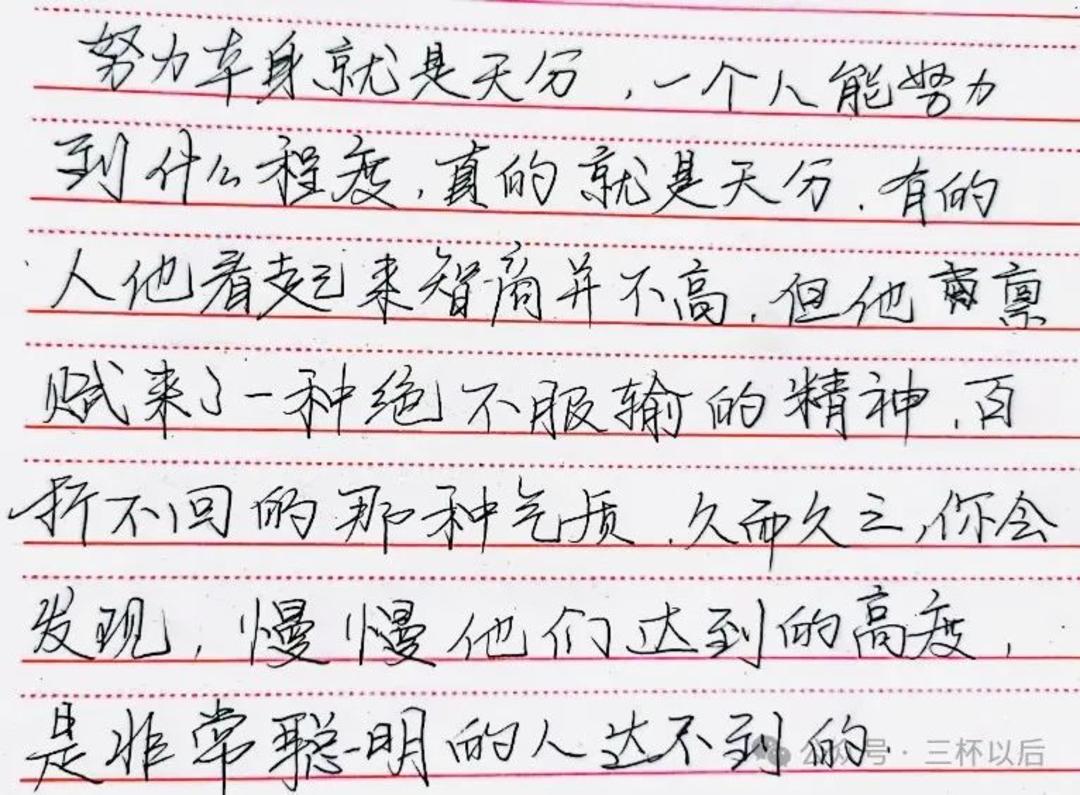 努力本身就是天分，一个人能努力
到什么程度，真的就是天分．有的
人他看起来智商并不高，但他禀
赋来了一种绝不服输的精神，百
折不回的那种气质．久而久之，你会
发现，慢慢他们达到的高度，
是非常聪明的人达不到的．
公众号·三杯以后